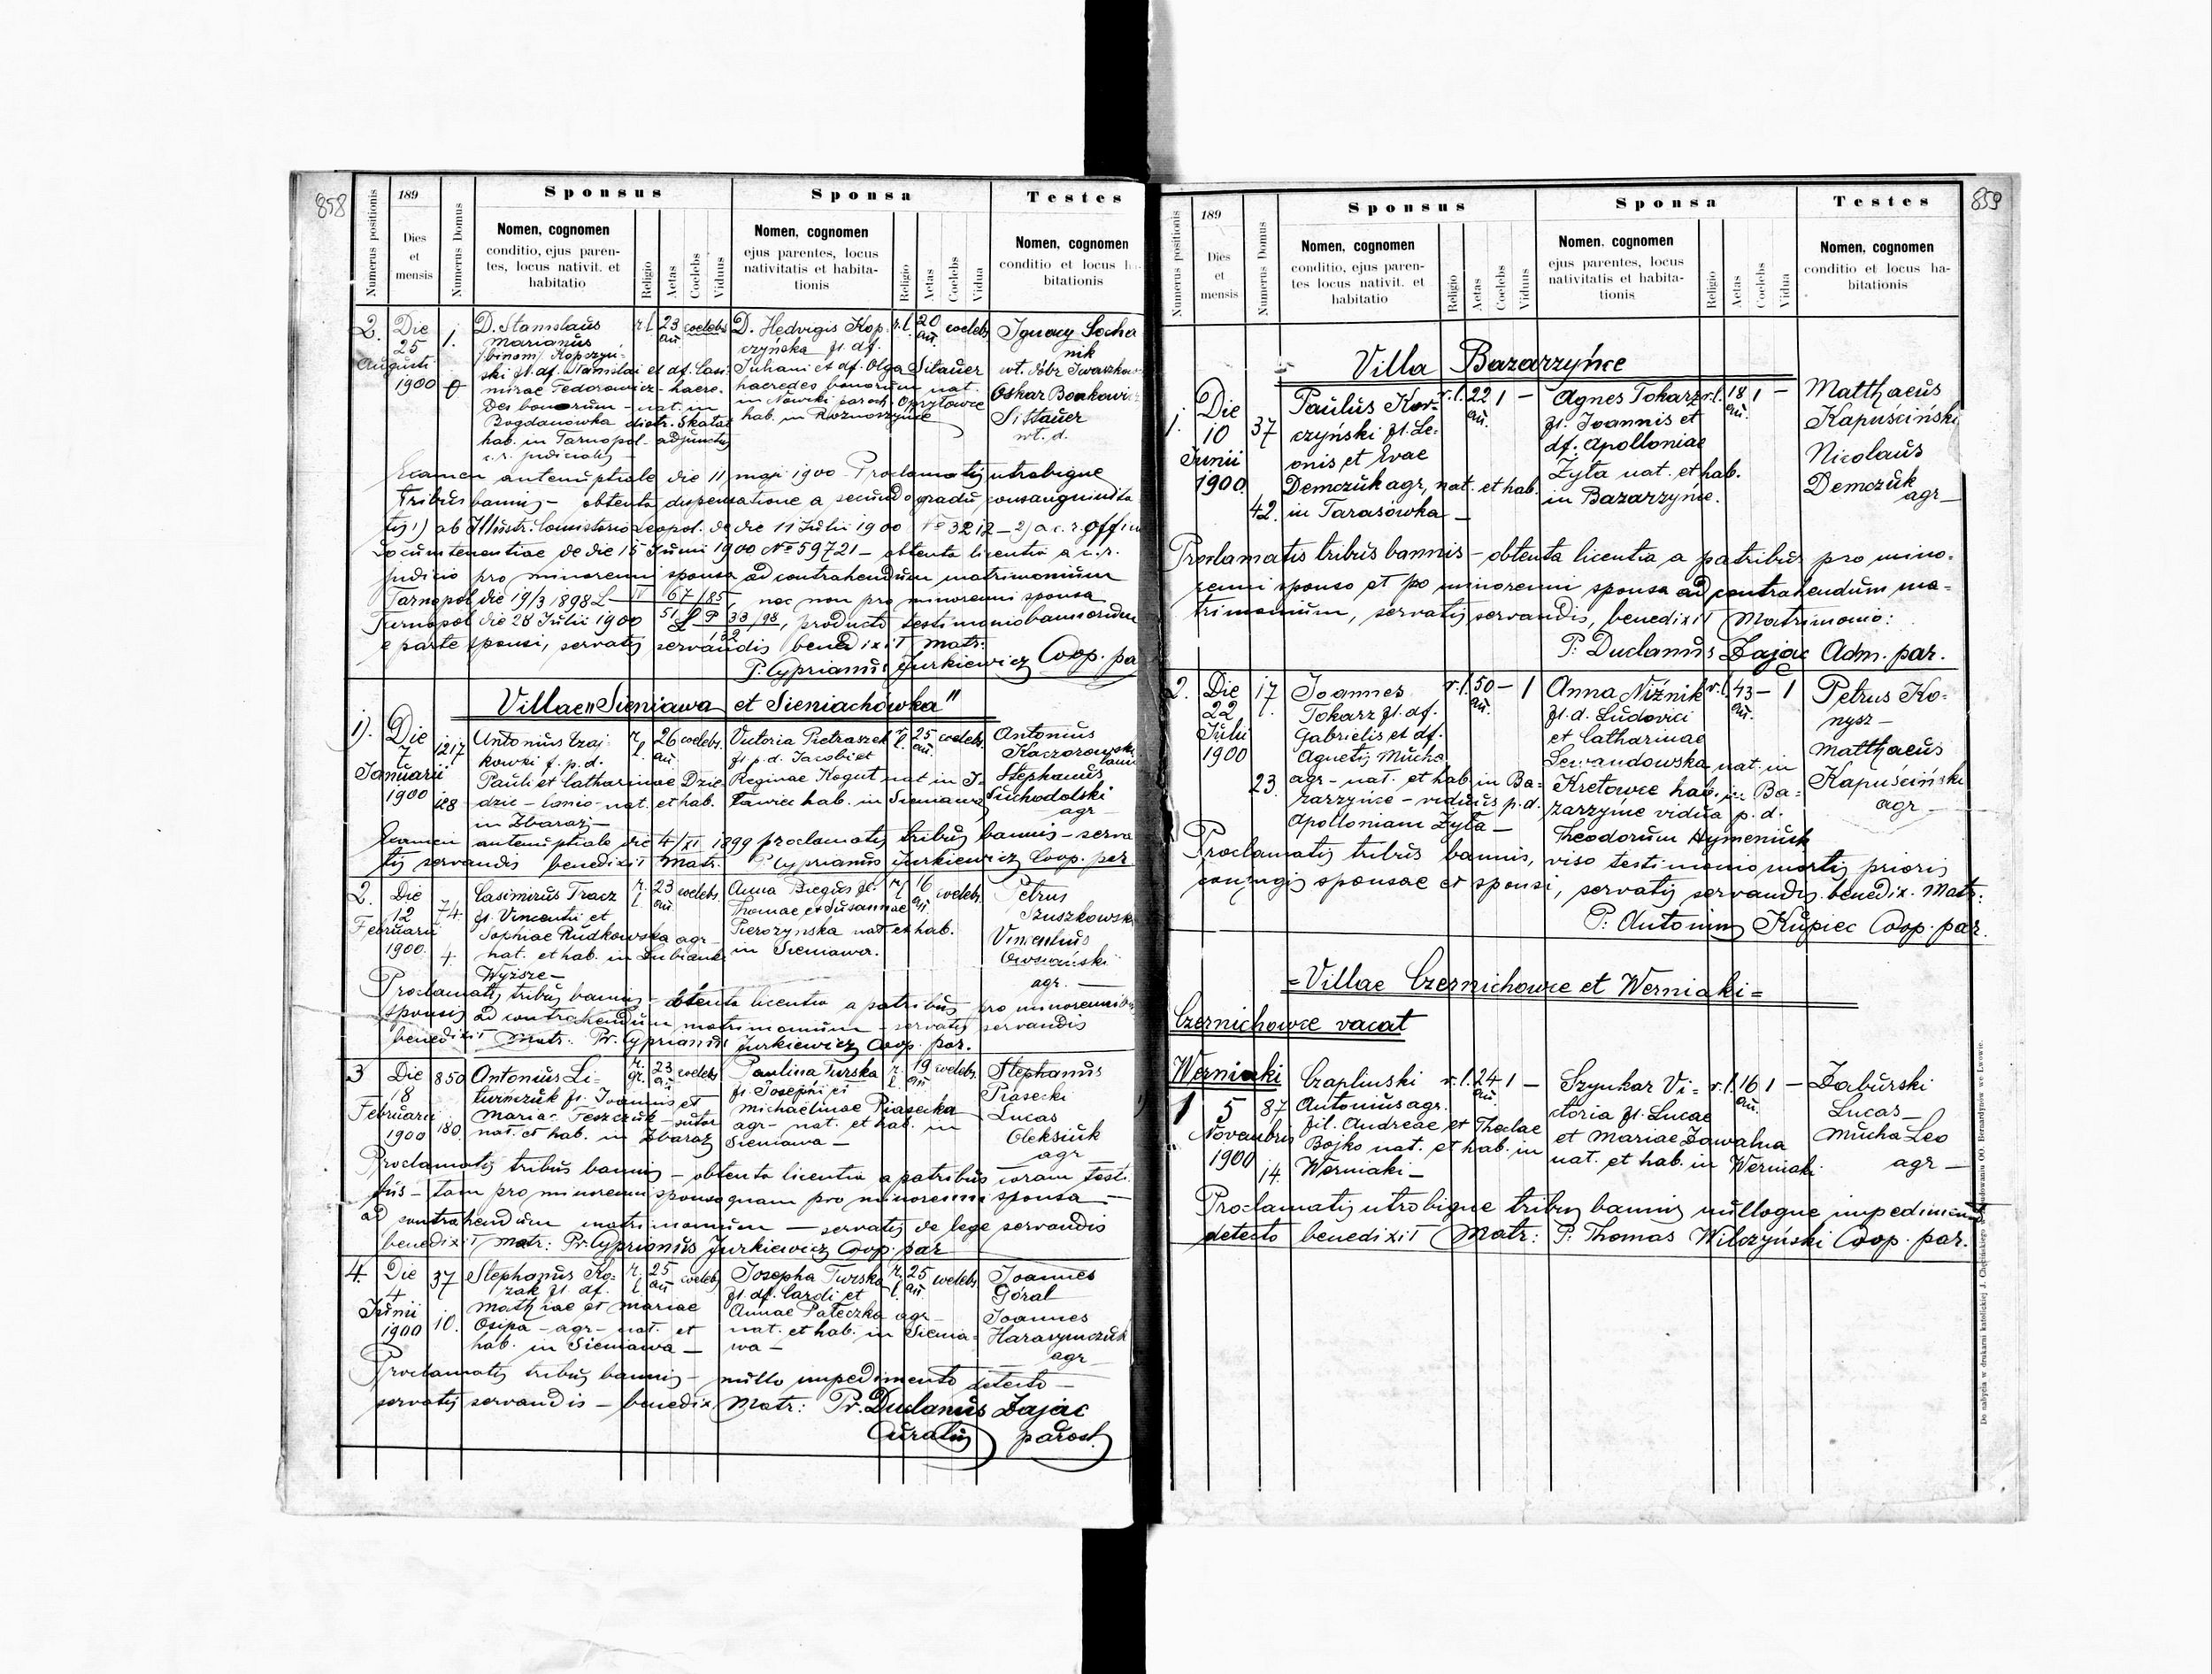 858
189
Sponsus
Sponsa
Testes
Numerus positionis
Dies
et
mensis
Numerus Domus
Nomen, cognomen
conditio, ejus paren-
tes, locus nativit. et
habitatio
Religio
Aetas
Coelebs
Viduus
Nomen, cognomen
ejus parentes, locus
nativitatis et habita-
tionis
Religio
Aetas
Coelebs
Vidua
Nomen, cognomen
conditio et locus ha-
bitationis
2. Die 25 Augusti 1900
1.
D. Stanislaus
Marianus
/binom/ Kopczyń-
ski fl. df. Stanislai et df. Casi-
mirae Fedorowicz - haere-
des bonorum - nat. in
Bogdanówka distr. Skałat
hab. in Tarnopol - adjunctus
c. r. judicialis -
r. l. 23 an. coelebs
D. Hedvigis Kop-
czyńska fl. df.
Juliani et df. Olga Sitauer
haeredes bonorum nat.
in Nowiki paroch. Opryłowce
hab. in Roznoszyńce
r. l. 20 an. coelebs
Ignacy Socha
nik
wt. dóbr Iwaszkow
Oskar Bonkowicz
Sittauer
wt. d.
Examen antenuptiale die 11 maji 1900 - Proclamatis utrobique
tribus bannis - obtenta dispensatione a secundo gradu consanguinita
tis 1) ab Illustr. Consistorio Leopol. de die 11 Julii 1900 No 3212 - 2) a c. r. officio
Locumtenentiae de die 15 Junii 1900 No 59721 - obtenta licentia a c. r.
judicio pro minorenni sponso ad contrahendum matrimonium
Tarnopol die 19/3 1898 L IV 67/85, nec non pro minorenni sponsa
Tarnopol die 28 Julii 1900 51 L P 33/98, producto testimonio bannorum
e parte sponsi, servatis servandis benedixit matr:
P. Cyprianus Jurkiewicz Coop. par
Villae "Sieniawa et Sieniachówka"
1). Die 7 Januarii 1900
1217
128
Antonius Czaj-
kowski f. p. d.
Pauli et Catharinae Dzie-
dzic - lanio - nat. et hab.
in Zbaraż -
r. l. 26 an. coelebs.
Victoria Pietraszek
fl p. d. Jacobi et
Reginae Kogut nat in I-
ławice hab. in Sieniawa
r. l. 25 an. coelebs.
Antonius
Kaczorowski
lanio
Stephanus
Suchodolski
agr
Examen antenuptiale die 4/XI 1899 proclamatis tribus bannis - serva
tis servandis benedixit Matr. P Cyprianus Jurkiewicz Coop. par
2. Die 12 Februarii 1900.
74.
4.
Casimirus Tracz
fl. Vincentii et
Sophiae Rudkowska agr -
nat. et hab. in Lubianki
Wyższe -
r. l. 23 an. coelebs.
Anna Biegus fl.
Thomae et Susannae
Pierozynska nat et hab.
in Sieniawa.
r. l. 16 an. coelebs.
Petrus
Szuszkowski
Vincentius
agr. -
Proclamatis tribus bannis - obtenta licentia a patribus pro minorennibus
sponsis ad contrahendum matrimonium - servatis servandis
benedixit Matr: Pr. Cyprianus Jurkiewicz Coop. par.
3 Die 18 Februarii 1900
850
180.
Antonius Li-
turńczuk fl. Joannis et
Maria Teszczuk - sutor
nat. et hab. in Zbaraż
r. gr. 23 an. coelebs
Paulina Turska
fl. Josephi et
Michaelinae Piasecka
agr - nat. et hab. in
Sieniawa -
r. l. 19 an coelebs.
Stephanus
Piasecki
Lucas
Oleksiuk
agr
Proclamatis tribus bannis - obtenta licentia a patribus coram testi-
bus - tam pro minorenni sponso quam pro minorenni sponsa -
ad contrahendum matrimonium - servatis de lege servandis
benedixit Matr: Pr. Cyprianus Jurkiewicz Coop. par
4. Die 4 Junii 1900
37
10.
Stephanus Ko-
zak fl df.
Mathiae et Mariae
Osipa - agr - nat. et
hab. in Sieniawa -
r. l. 25 an coelebs
Josepha Turska
fl. df. Caroli et
Annae Pateczka agr -
nat. et hab. in Sienia-
wa -
r. l. 25 an. coelebs
Joannes
Góral
Joannes
Harasymczuk
agr
Proclamatis tribus bannis - nullo impedimento detecto -
servatis servandis - benedix. Matr: Pr. Duclanus Zając
Curatus paroch.
859
189
Sponsus
Sponsa
Testes
Numerus positionis
Dies
et
mensis
Numerus Domus
Nomen, cognomen
conditio, ejus paren-
tes locus nativit. et
habitatio
Religio
Aetas
Coelebs
Viduus
Nomen. cognomen
ejus parentes, locus
nativitatis et habita-
tionis
Religio
Aetas
Coelebs
Vidua
Nomen, cognomen
conditio et locus ha-
bitationis
Villa Bazarzyńce
1. Die 10 Junii 1900.
37
42.
Paulus Kor-
czyński fl. Le-
onis et Evae
Demczuk agr, nat. et hab.
in Tarasówka -
r. l. 22 an. 1 -
Agnes Tokarz
fl. Joannis et
df. Apolloniae
Żyła nat. et hab.
in Bazarzyńce.
r. l. 18 an. 1 -
Matthaeus
Kapuściński
Nicolaus
Demczuk
agr -
Proclamatis tribus bannis - obtenta licentia a patribus pro mino-
renni sponso et po minorenni sponsa ad contrahendum ma-
trimonium, servatis servandis, benedixit Matrimonio:
P. Duclanus Zając Adm. par.
2. Die 22 Julii 1900
17
23.
Joannes
Tokarz fl. df.
Gabrielis et df.
Agnetis Mucha
agr - nat. et hab. in Ba-
zarzyńce - viduus p. d.
Apolloniam Żyła -
r. l. 50 an. - 1
Anna Niżnik
fl. d. Ludovici
et Catharinae
Lewandowska nat. in
Kretowce hab. in Ba-
zarzyńce vidua p. d.
Theodorum Hymeniuk
r. l. 43 an. - 1
Petrus Ko-
nysz -
Matthaeus
Kapuściński
agr -
Proclamatis tribus bannis, viso testimonio mortis prioris
conjugis sponsae et sponsi, servatis servandis benedix. Matr:
P. Antonius Kupiec Coop. par.
= Villae Czernichowce et Werniaki =
Czernichowce vacat
Werniaki
1 5 Novembris 1900
87
14.
Czapliński
Antonius agr.
fil. Andreae et Theclae
Bojko nat. et hab. in
Werniaki -
r. l. 24 an. 1 -
Szynkar Vi-
ctoria fl. Lucae
et Mariae Zawalna
nat. et hab. in Werniaki.
r. l. 16 an. 1 -
Zaburski
Lucas -
Mucha Leo
agr -
Proclamatis utrobique tribus bannis nulloque impedimento
detecto benedixit Matr: P. Thomas Wilczyński Coop. par.